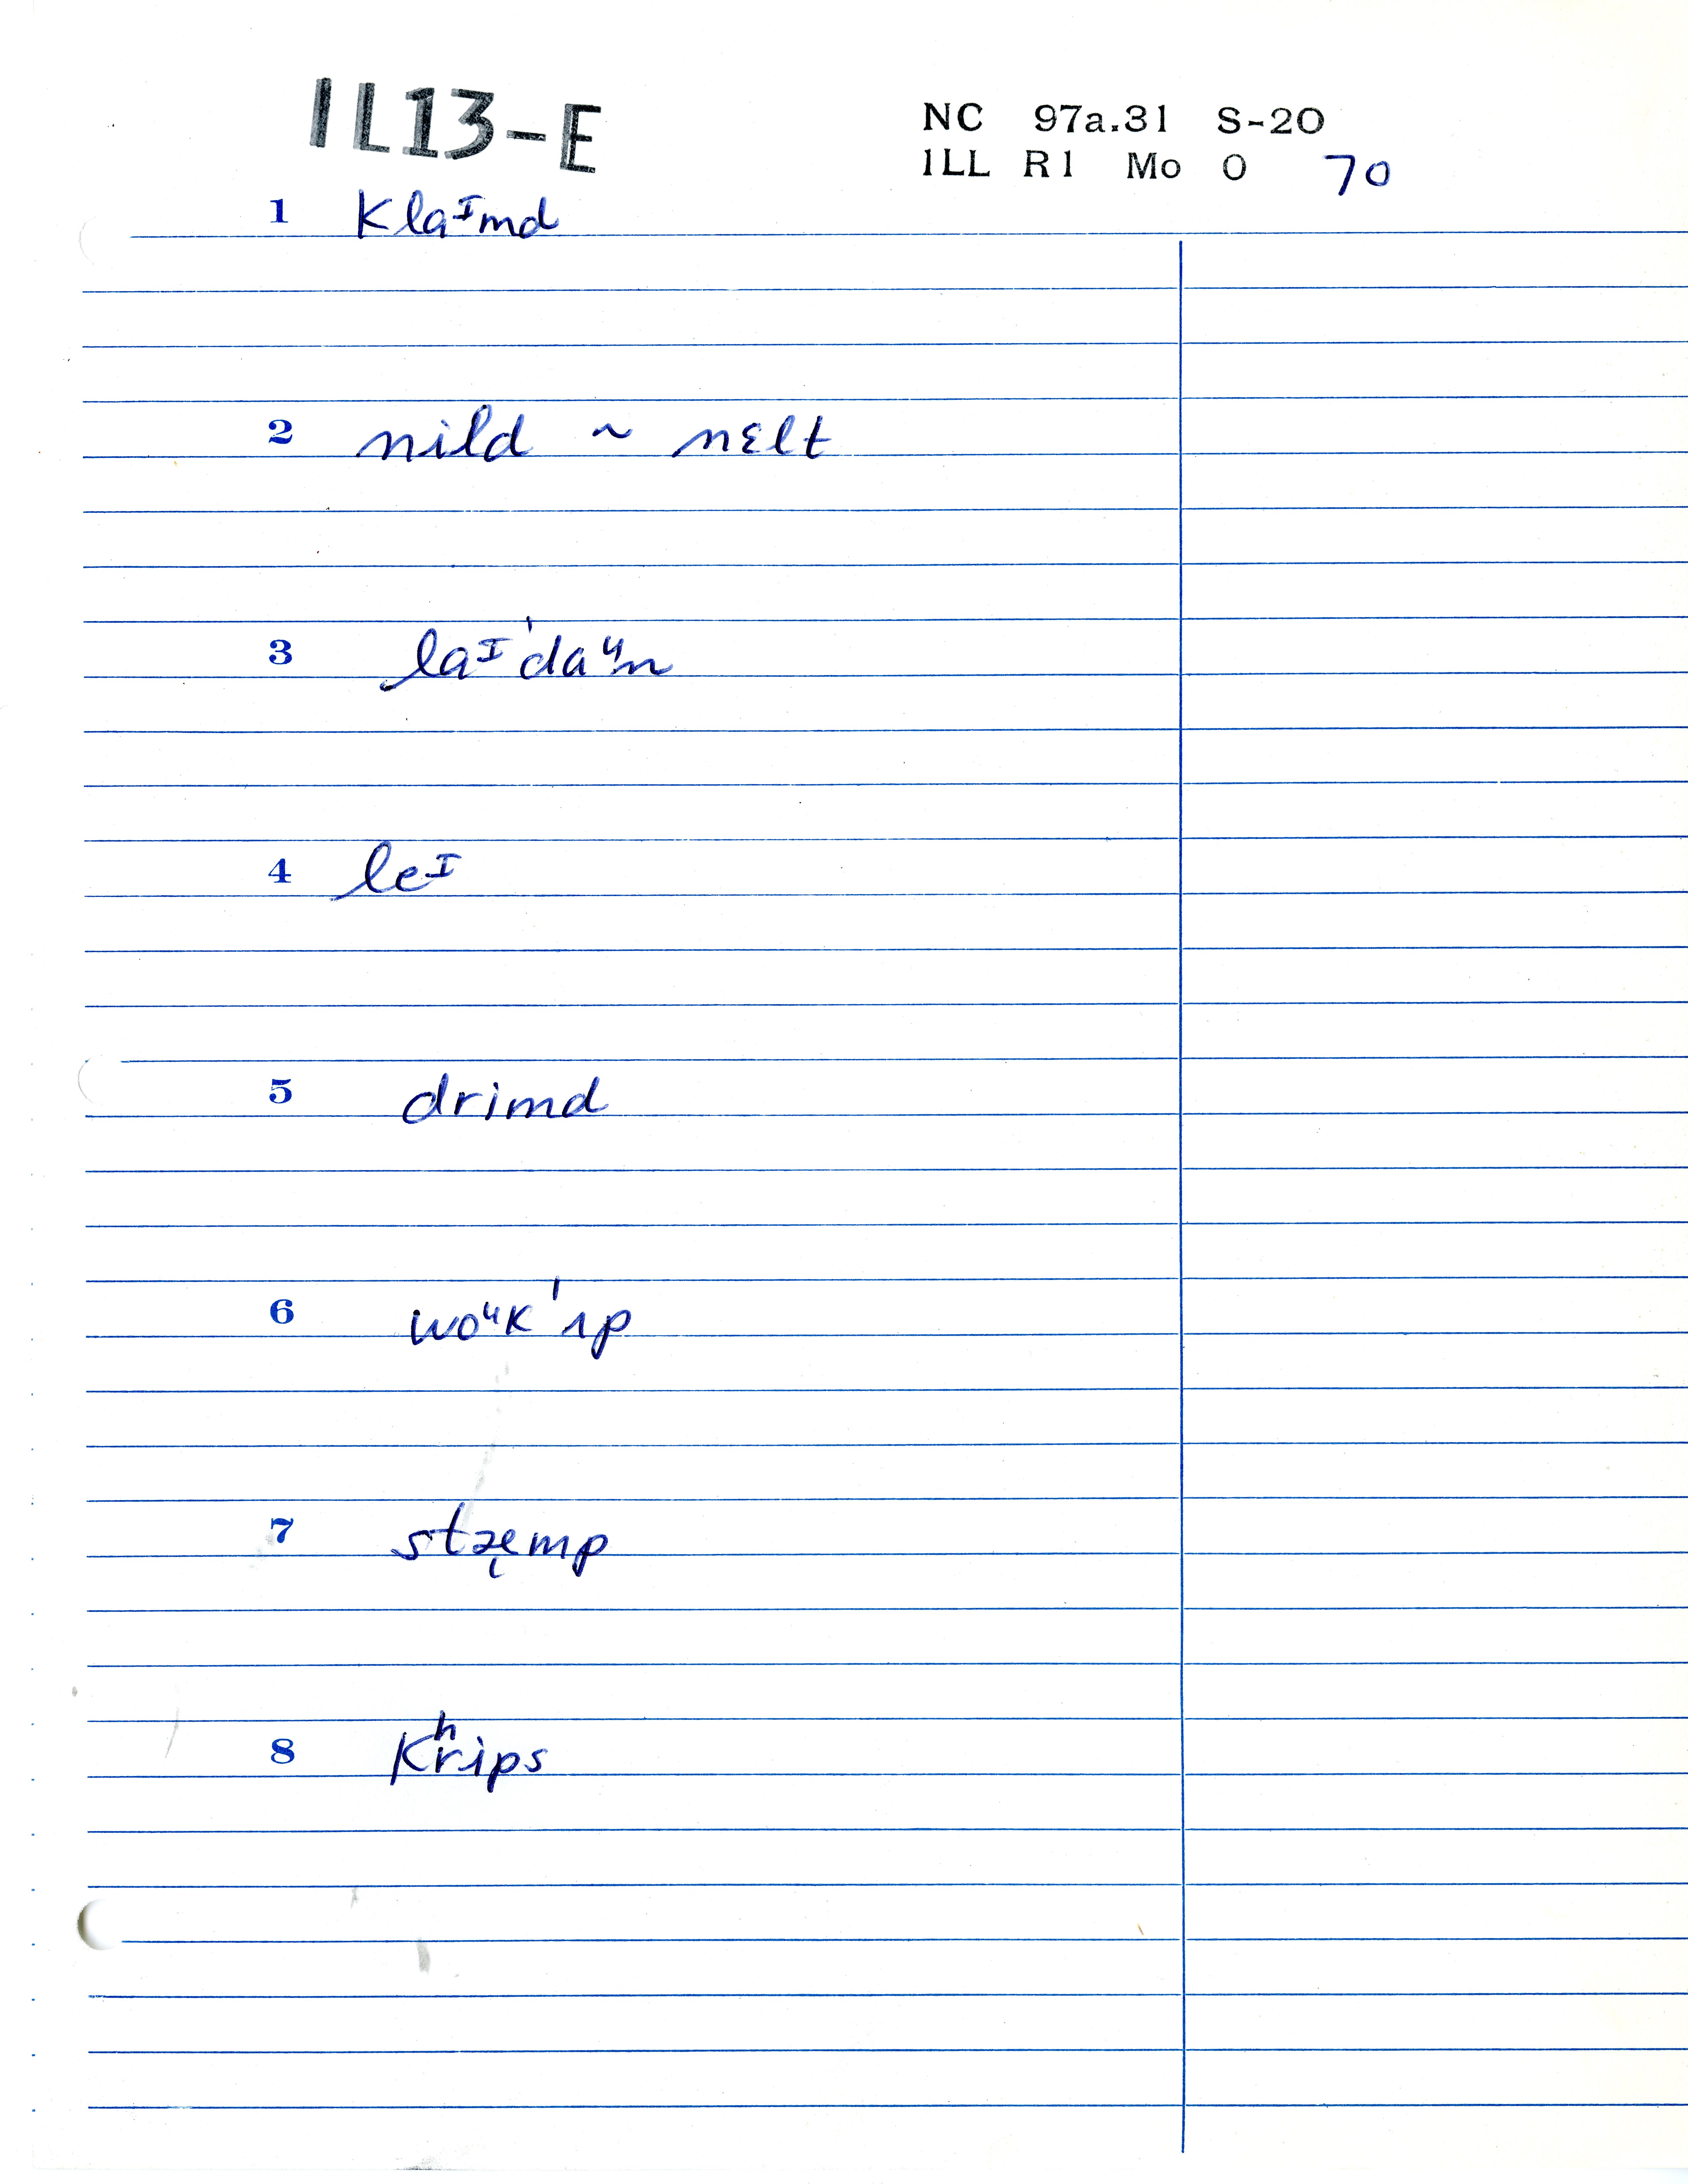 IL13-E
NC 97a.31 S-20
ILL R1 Mo O 70
1 klaᶦmd
2 nild ~ nɛlt
3 laᶦˈdaᶸn
4 leᶦ
5 drimd
6 woᶸkˈʌp
7 stæ̨mp
8 kʰrips